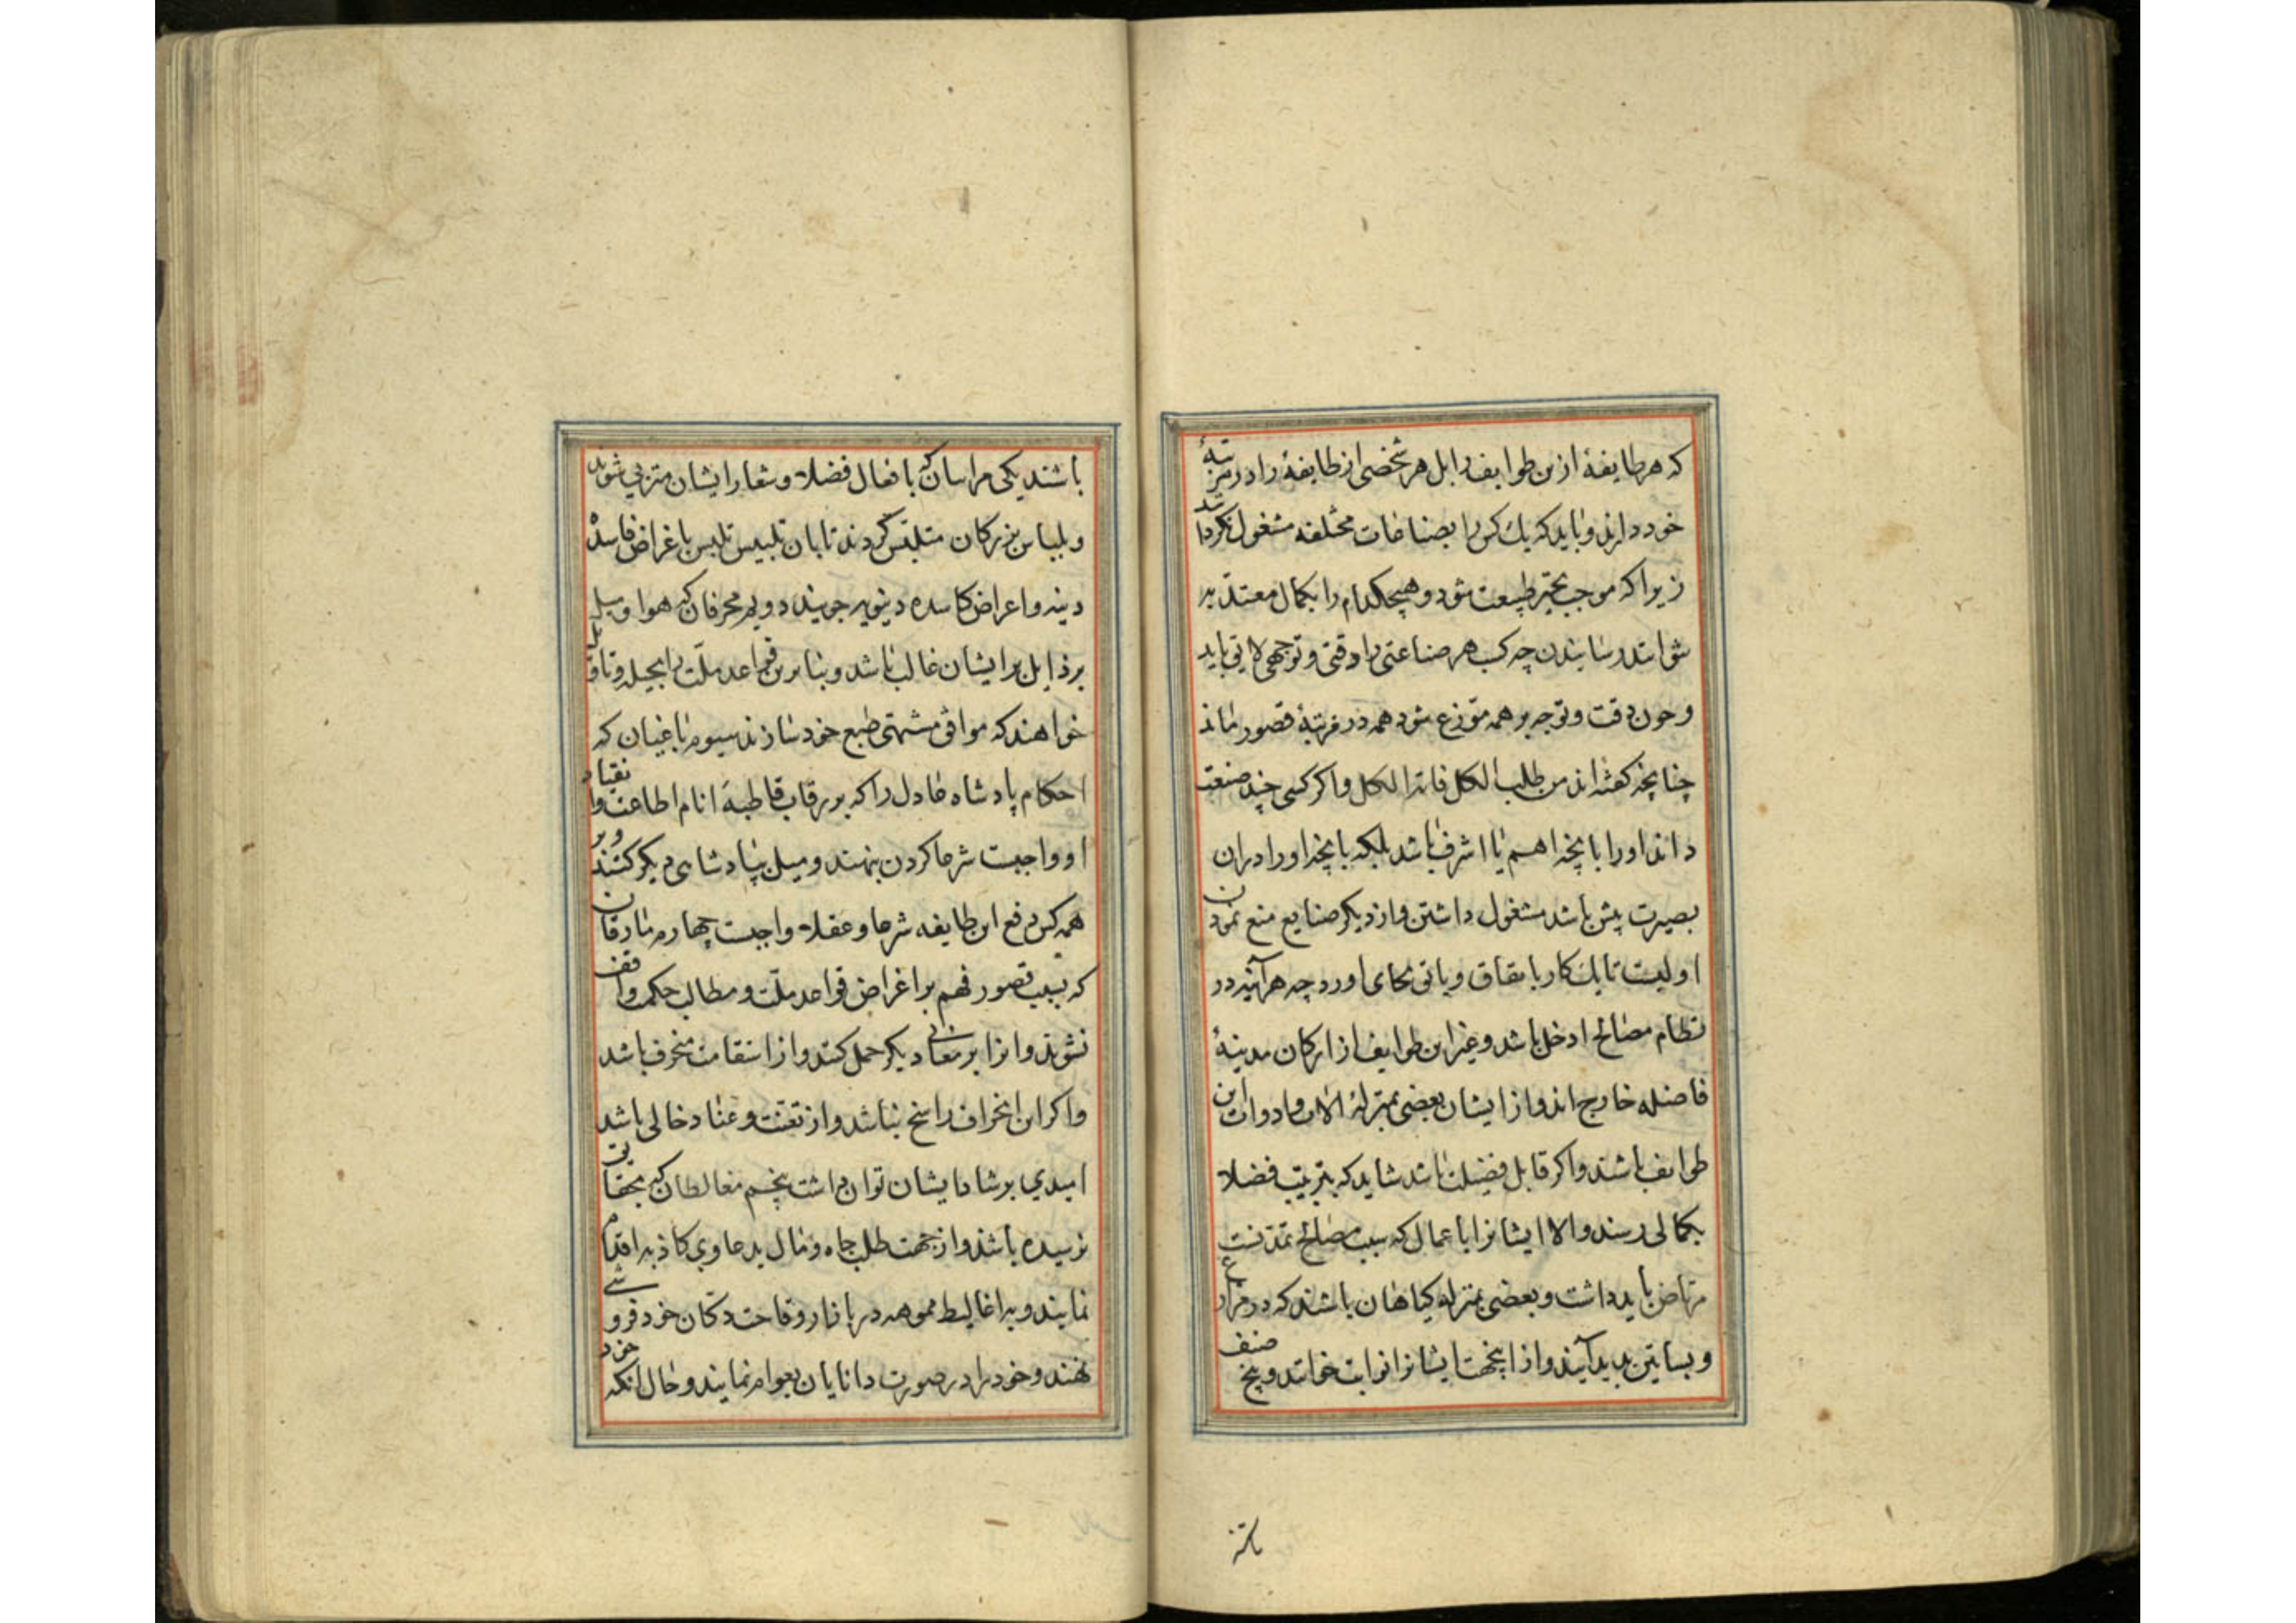 که هر طایفهٔ ازین طوایف را بل هر شخصی از طایفهٔ را در مرتبهٔ
خود دارند و باید که یک کس را بصناعات مختلفه مشغول نگردانند
زیرا که موجب تحیر طبیعت شود و هیچکدام را بکمال معتد به
نتوانند رسانیدن چه کسب هر صناعتی را وقتی و توجهی لایق باید
و چون وقت و توجه بر همه متوزع شود همه در مرتبهٔ قصور ماند
چنانچه گفته‌اند من طلب الکل فاته الکل و اگر کسی چند صنعت
داند او را بانچه اهم یا اشرف باشد بلکه بانچه او را در ان
بصیرت بیش باشد مشغول داشتن و از دیگر صنایع منع نمودن
اولیست تا یک کار باتقان و باتی بجای اورد چه هر آینه در
نظام مصالح ادخل باشد و غیر این طوایف از ارکان مدینهٔ
فاضله خارج اند و از ایشان بعضی بمنزلهٔ آلات و ادوات این
طوایف باشند و اگر قابل فضیلت باشد شاید که بتربیت فضلا
بکمالی رسند والا ایشانرا باعمال که سبب مصالح تمدنست
مرتاض باید داشت و بعضی بمنزله کیاهان باشند که در مزارع
و بساتین پدید آیند و از اینجهت ایشانرا نوابت خوانند و پنج صنف
باشند یکی مراییان که بافعال فضلا و شعار ایشان متزیی شوند
و بلباس بزرکان متلبس کردند تا بان تلبیس تلبس باغراض فاسده
دینه و اعراض کاسده دینویه جویند دویم محرفان که هوا و میل
برذایل بر ایشان غالب باشد و بنابرین قواعد ملّت را بحیله و تاویل
خواهند که موافق مشتهی طبع خود سازند سیوم باغیان که
احکام پادشاه عادل را که بر رقاب قاطبهٔ انام اطاعت و انقیاد
او واجبست شرعا کردن ننهند و میل بپادشاهی دیگر کنند و بر
همه کس دفع این طایفه شرعا و عقلا واجبست چهارم مارقان
که بسبب قصور فهم بر اغراض قواعد ملّت و مطالب حکمت واقف
نشوند و انرا بر معانی دیگر حمل کنند و از استقامت منحرف باشد
و اکر این انحراف راسخ نباشد و از تعنت و عناد خالی باشد
امیدی برشاد ایشان توان داشت پنجم مغالطان که بحقایق
نرسیده باشند و از جهت طلب جاه و مال بدعاوی کاذبه اقدام
نمایند و براغالیط مموهه در بازار وقاحت دکان خود فروشی
نهند و خود را در صورت دانایان بعوام نمایند و حال آنکه خود